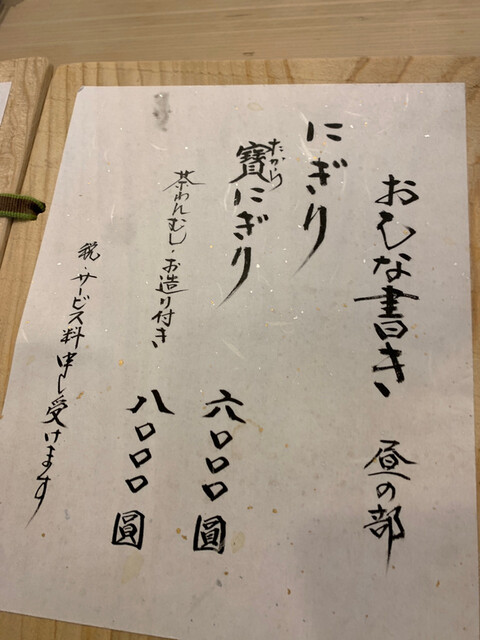 おしな書き　昼の部
にぎり　六〇〇〇圓
たから
寶にぎり　八〇〇〇圓
茶わんむし・お造り付き
税・サービス料申し受けます